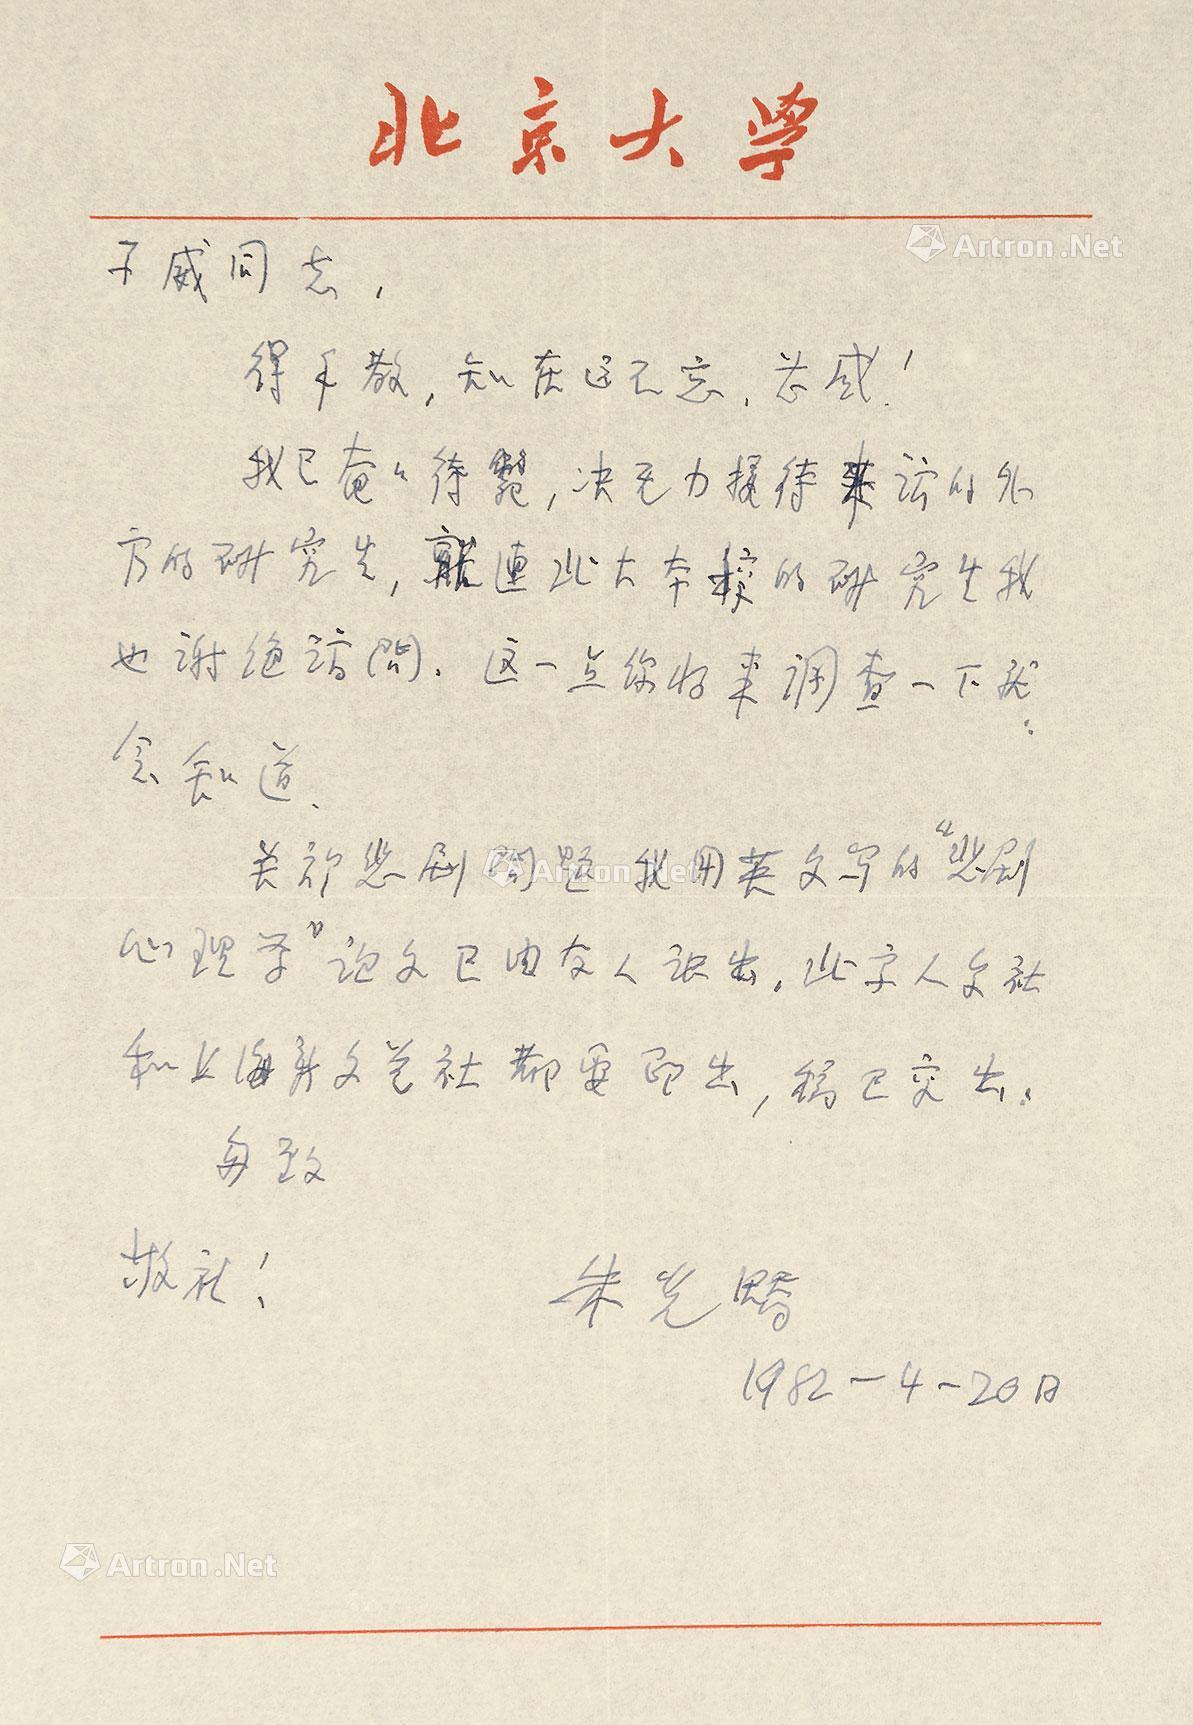 北京大学
Artron.Net
子威同志，
得手教，知在远不忘，甚感！
我已奄々待毙，决无力接待来访的外
方的研究生，就连北大本校的研究生我
也谢绝访问。这一点你将来调查一下就
会知道。
关于悲剧问题我用英文写的“悲剧
Artron.Net
心理学”论文已由友人译出。北京人文社
和上海文艺社都要印出，稿已交出。
匆致
敬礼！
朱光潜
1982-4-20日
Artron.Net